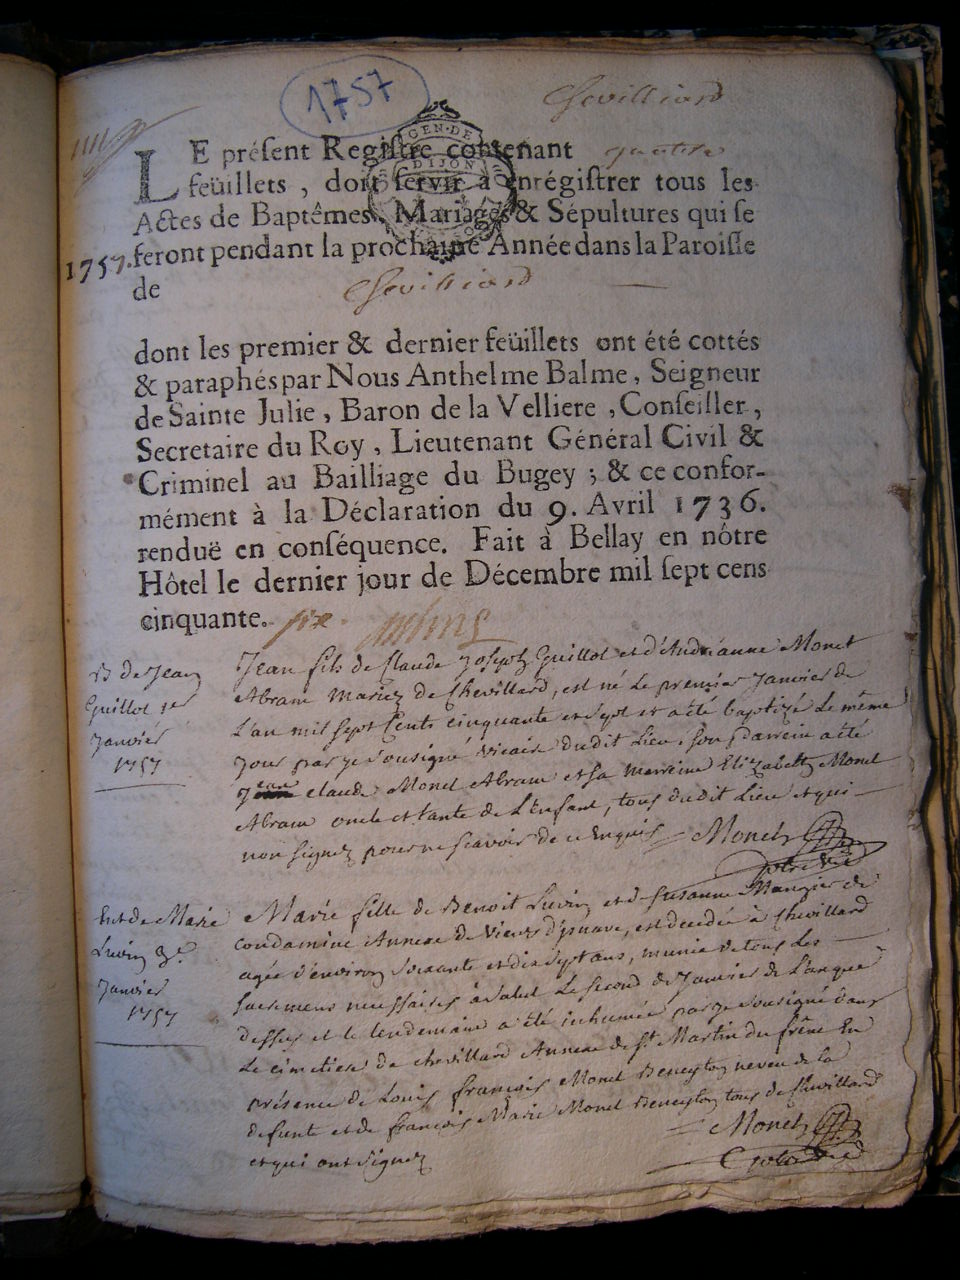 1757
Chevilliard
LE préſent Regiſtre contenant quatorze
feüillets, doit ſervir à enrégiſtrer tous les
Actes de Baptêmes, Mariages & Sépultures qui ſe
1757. feront pendant la prochaine Année dans la Paroiſſe
de Chevilliard
GEN·DE
DIJON
dont les premier & dernier feüillets ont été cottés
& paraphés par Nous Anthelme Balme, Seigneur
de Sainte Julie, Baron de la Velliere, Conſeiller,
Secretaire du Roy, Lieutenant Général Civil &
Criminel au Bailliage du Bugey; & ce confor-
mément à la Déclaration du 9. Avril 1736.
renduë en conſéquence. Fait à Bellay en nôtre
Hôtel le dernier jour de Décembre mil ſept cens
cinquante. six.
B de Jean
Guillot 1er
Janvier
1757
Jean fils de Claude Joseph Guillot et d'Andrianne Monet
Abram mariez de Chevillard, est né le premier Janvier de
l'an mil sept cents cinquante et sept et a été baptizé le même
jour par je sousigné vicair dudit lieu, son parrein a été
Jean claude Monet Abram et sa marreine Elizabeth Monet
Abram oncle et tante de l'enfant, tous dudit lieu et qui
non signez pour ne scavoir de ce enquis Monet
Ent de Marie
Luvin 3e.
Janvier
1757
Marie fille de Benoit Luvin et d Susanne Mangier de
Condamine Annexe de Vieux d'isnave, est decedée à Chevillard
agée d'environ soixante et dix sept ans, munie de tous les
sacremens necessaires à salut le second de Janvier de l'an que
dessus et le lendemain a été inhumée par je sousigné dans
le cimetiere de chevillard Annexe de St Martin du frêne En
présence de Louis françois Monet Beneyton neveu de la
defunte et de françois Marie Monet Beneyton tous de Chevillard
et qui ont signez Monet